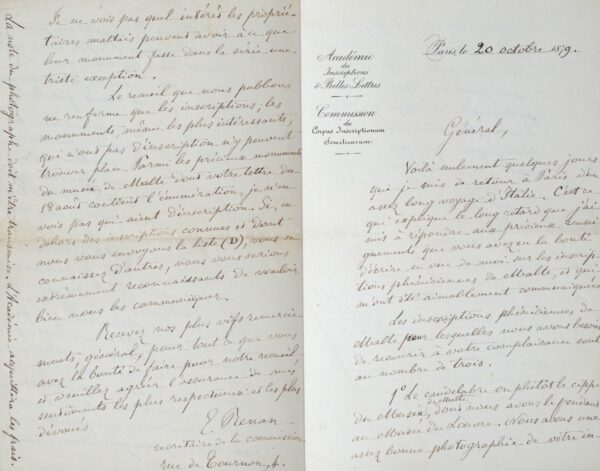 Académie
des
Inscriptions
& Belles-Lettres
Commission
du
Corpus Inscriptionum
Semiticarum
Paris, le 20 octobre 1879.
Général,
Voilà seulement quelques jours
que je suis de retour à Paris d'un
assez long voyage d'Italie. C'est ce
qui explique le long retard que j'ai
mis à répondre aux précieux rensei-
gnements que vous avez eu la bonté
d'écrire en vue de moi sur les inscrip-
tions phéniciennes de Malte, et qui
m'ont été aimablement communiqués
Les inscriptions phéniciennes de
Malte pour lesquelles nous avons besoin
de recourir à votre complaisance sont
au nombre de trois.
1º Le candélabre ou plutôt le cippe
du Musée de Malte, dont nous avons le pendant
au Musée du Louvre. Nous avons une
assez bonne photographie de votre in-
Je ne vois pas quel intérêt les proprié-
taires maltais peuvent avoir à ce que
leur monument fasse dans la série une
triste exception.
Le recueil que nous publions
ne renferme que les inscriptions, les
monuments, même les plus intéressants,
qui n'ont pas d'inscription n'y peuvent
trouver place. Parmi les précieux monuments
du musée de Malte dont votre lettre du
18 août contient l'énumération, je n'en
vois pas qui aient d'inscription. Si, en
dehors des inscriptions connues et dont
nous vous envoyons la liste (D), vous en
connaissez d'autres, nous vous serions
extrêmement reconnaissants de vouloir
bien nous les communiquer.
Recevez nos plus vifs remercie-
ments, général, pour tout ce que vous
avez la bonté de faire pour notre recueil
et veuillez agréer l'assurance de mes
sentiments les plus respectueux et les plus
dévoués
E. Renan
secrétaire de la commission
rue de Tournon, 4.
La note du photographe doit m'être transmise; l'Académie acquittera les frais.